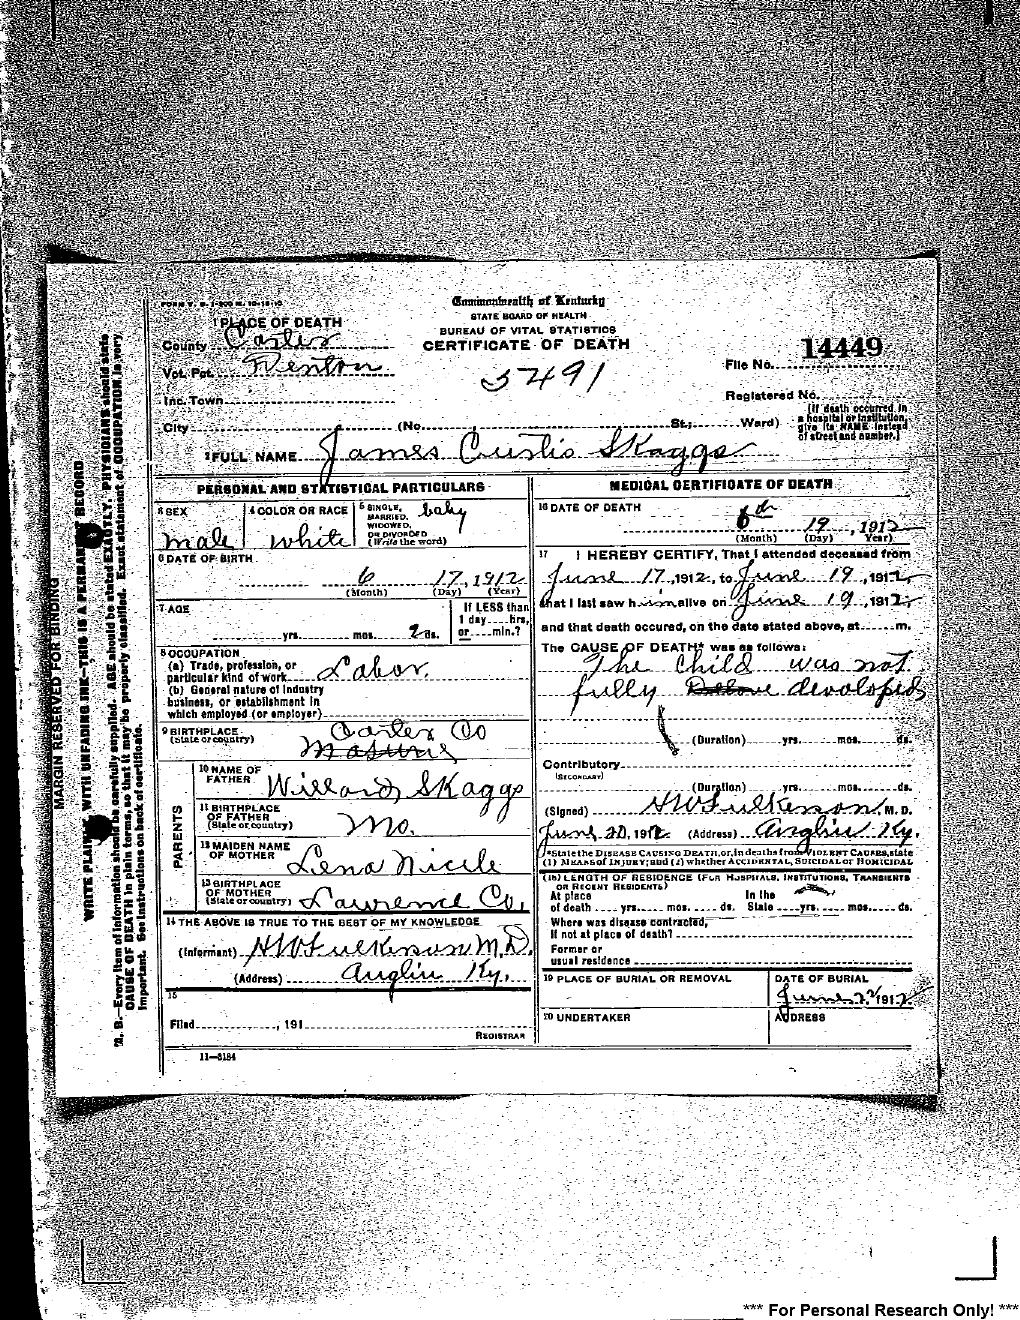 Commonwealth of Kentucky
STATE BOARD OF HEALTH
BUREAU OF VITAL STATISTICS
CERTIFICATE OF DEATH
1 PLACE OF DEATH
County Carter
Vot. Pct. Denton
Inc. Town
City (No. St.; Ward)
5491
File No. 14449
Registered No.
(If death occurred in
a hospital or institution,
give its NAME instead
of street and number.)
2 FULL NAME James Curtis Skaggs
PERSONAL AND STATISTICAL PARTICULARS
3 SEX
male
4 COLOR OR RACE
white
5 SINGLE,
MARRIED,
WIDOWED,
OR DIVORCED
(Write the word)
baby
6 DATE OF BIRTH
6 17, 1912
(Month) (Day) (Year)
7 AGE
yrs. mos. 2 ds.
If LESS than
1 day hrs.
or min.?
8 OCCUPATION
(a) Trade, profession, or
particular kind of work Labor.
(b) General nature of industry
business, or establishment in
which employed (or employer)
9 BIRTHPLACE
(State or country)
Carter Co
PARENTS
10 NAME OF
FATHER Willard Skaggs
11 BIRTHPLACE
OF FATHER
(State or country) Mo.
12 MAIDEN NAME
OF MOTHER Lena Nicele
13 BIRTHPLACE
OF MOTHER
(State or country) Lawrence Co,
14 THE ABOVE IS TRUE TO THE BEST OF MY KNOWLEDGE
(Informant) HW Fulkerson M.D.
(Address) Anglin Ky.
15
Filed , 191
REGISTRAR
11-3184
MEDICAL CERTIFICATE OF DEATH
16 DATE OF DEATH
6th 19, 1912
(Month) (Day) Year)
17 I HEREBY CERTIFY, That I attended deceased from
June 17, 1912, to June 19, 1912
that I last saw him alive on June 19, 1912
and that death occured, on the date stated above, at m.
The CAUSE OF DEATH* was as follows:
The Child was not
fully devaloped
(Duration) yrs. mos. ds.
Contributory
(SECONDARY)
(Duration) yrs. mos. ds.
(Signed) HW Fulkerson, M. D.
June 20, 1912 (Address) Anglin Ky.
*State the DISEASE CAUSING DEATH, or, in deaths from VIOLENT CAUSES, state
(1) MEANS OF INJURY; and (2) whether ACCIDENTAL, SUICIDAL or HOMICIDAL
(18) LENGTH OF RESIDENCE (FOR HOSPITALS, INSTITUTIONS, TRANSIENTS
OR RECENT RESIDENTS)
At place In the
of death yrs. mos. ds. State yrs. mos. ds.
Where was disease contracted,
If not at place of death?
Former or
usual residence
19 PLACE OF BURIAL OR REMOVAL
DATE OF BURIAL
June 1912
20 UNDERTAKER
ADDRESS
MARGIN RESERVED FOR BINDING
WRITE PLAINLY, WITH UNFADING INK—THIS IS A PERMANENT RECORD
N. B.—Every item of information should be carefully supplied. AGE should be stated EXACTLY. PHYSICIANS should state
CAUSE OF DEATH in plain terms, so that it may be properly classified. Exact statement of OCCUPATION is very
important. See instructions on back of certificate.
*** For Personal Research Only! ***